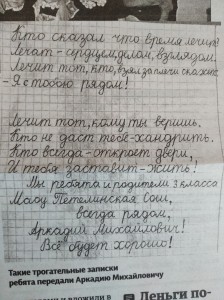 Кто сказал что время лечит?
Лечат – сердцем, делом, взглядом.
Лечит тот, кто, взяв за плечи скажет:
– Я с тобою рядом!
Лечит тот, кому ты веришь.
Кто не даст тебе – хандрить.
Кто всегда – откроет двери,
И тебя заставит – жить!
Мы ребята и родители 3 класса
Маоу Петелинская Сош,
всегда рядом,
Аркадий Михайлович!
Всё будет хорошо!
Такие трогательные записки
ребята передали Аркадию Михайловичу
и вложили в
Деньги по-